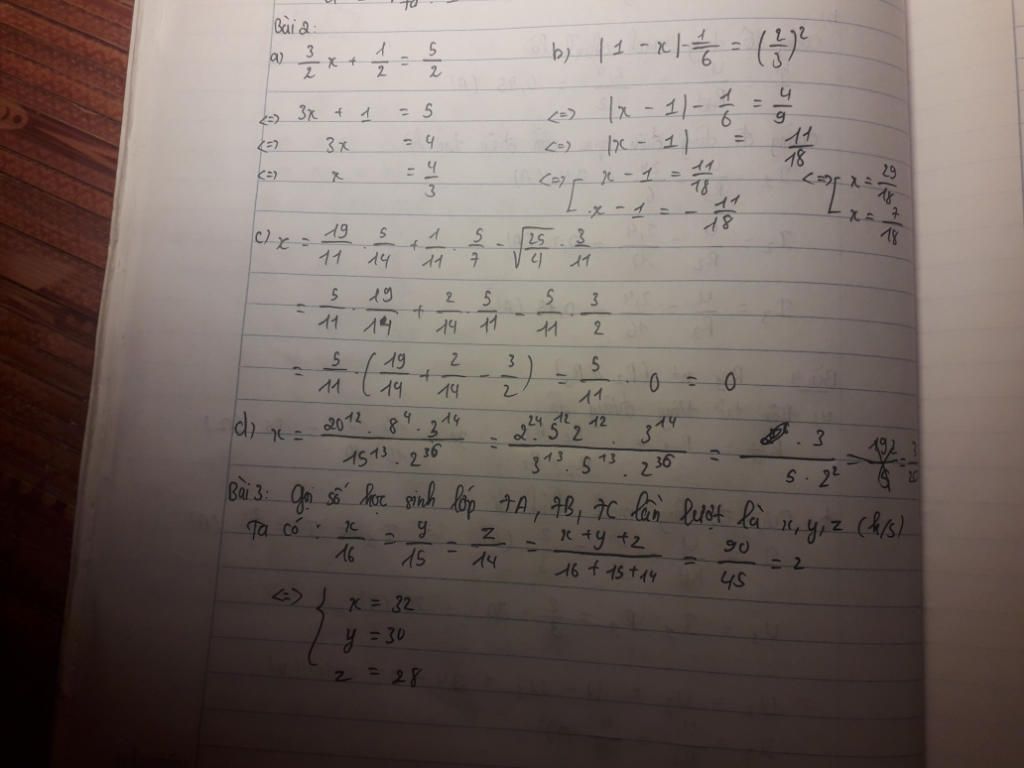 Bài 2:
a) 3/2 x + 1/2 = 5/2
<=> 3x + 1 = 5
<=> 3x = 4
<=> x = 4/3
b) |1 - x| - 1/6 = (2/3)²
<=> |x - 1| - 1/6 = 4/9
<=> |x - 1| = 11/18
<=> [ x - 1 = 11/18 <=> [ x = 29/18
x - 1 = - 11/18 x = 7/18
c) x = 19/11 · 5/14 + 1/11 · 5/7 - √(25/4) · 3/11
= 5/11 · 19/14 + 2/14 · 5/11 - 5/11 · 3/2
= 5/11 · (19/14 + 2/14 - 3/2) = 5/11 · 0 = 0
d) x = (20¹² · 8⁴ · 3¹⁴)/(15¹³ · 2³⁶) = (2²⁴ · 5¹² 2¹² · 3¹⁴)/(3¹³ · 5¹³ · 2³⁶) = · 3/5 · 2² =
Bài 3: Gọi số học sinh lớp 7A, 7B, 7C lần lượt là x, y, z (h/s)
Ta có: x/16 = y/15 = z/14 = (x + y + z)/(16 + 15 + 14) = 90/45 = 2
<=> { x = 32
y = 30
z = 28